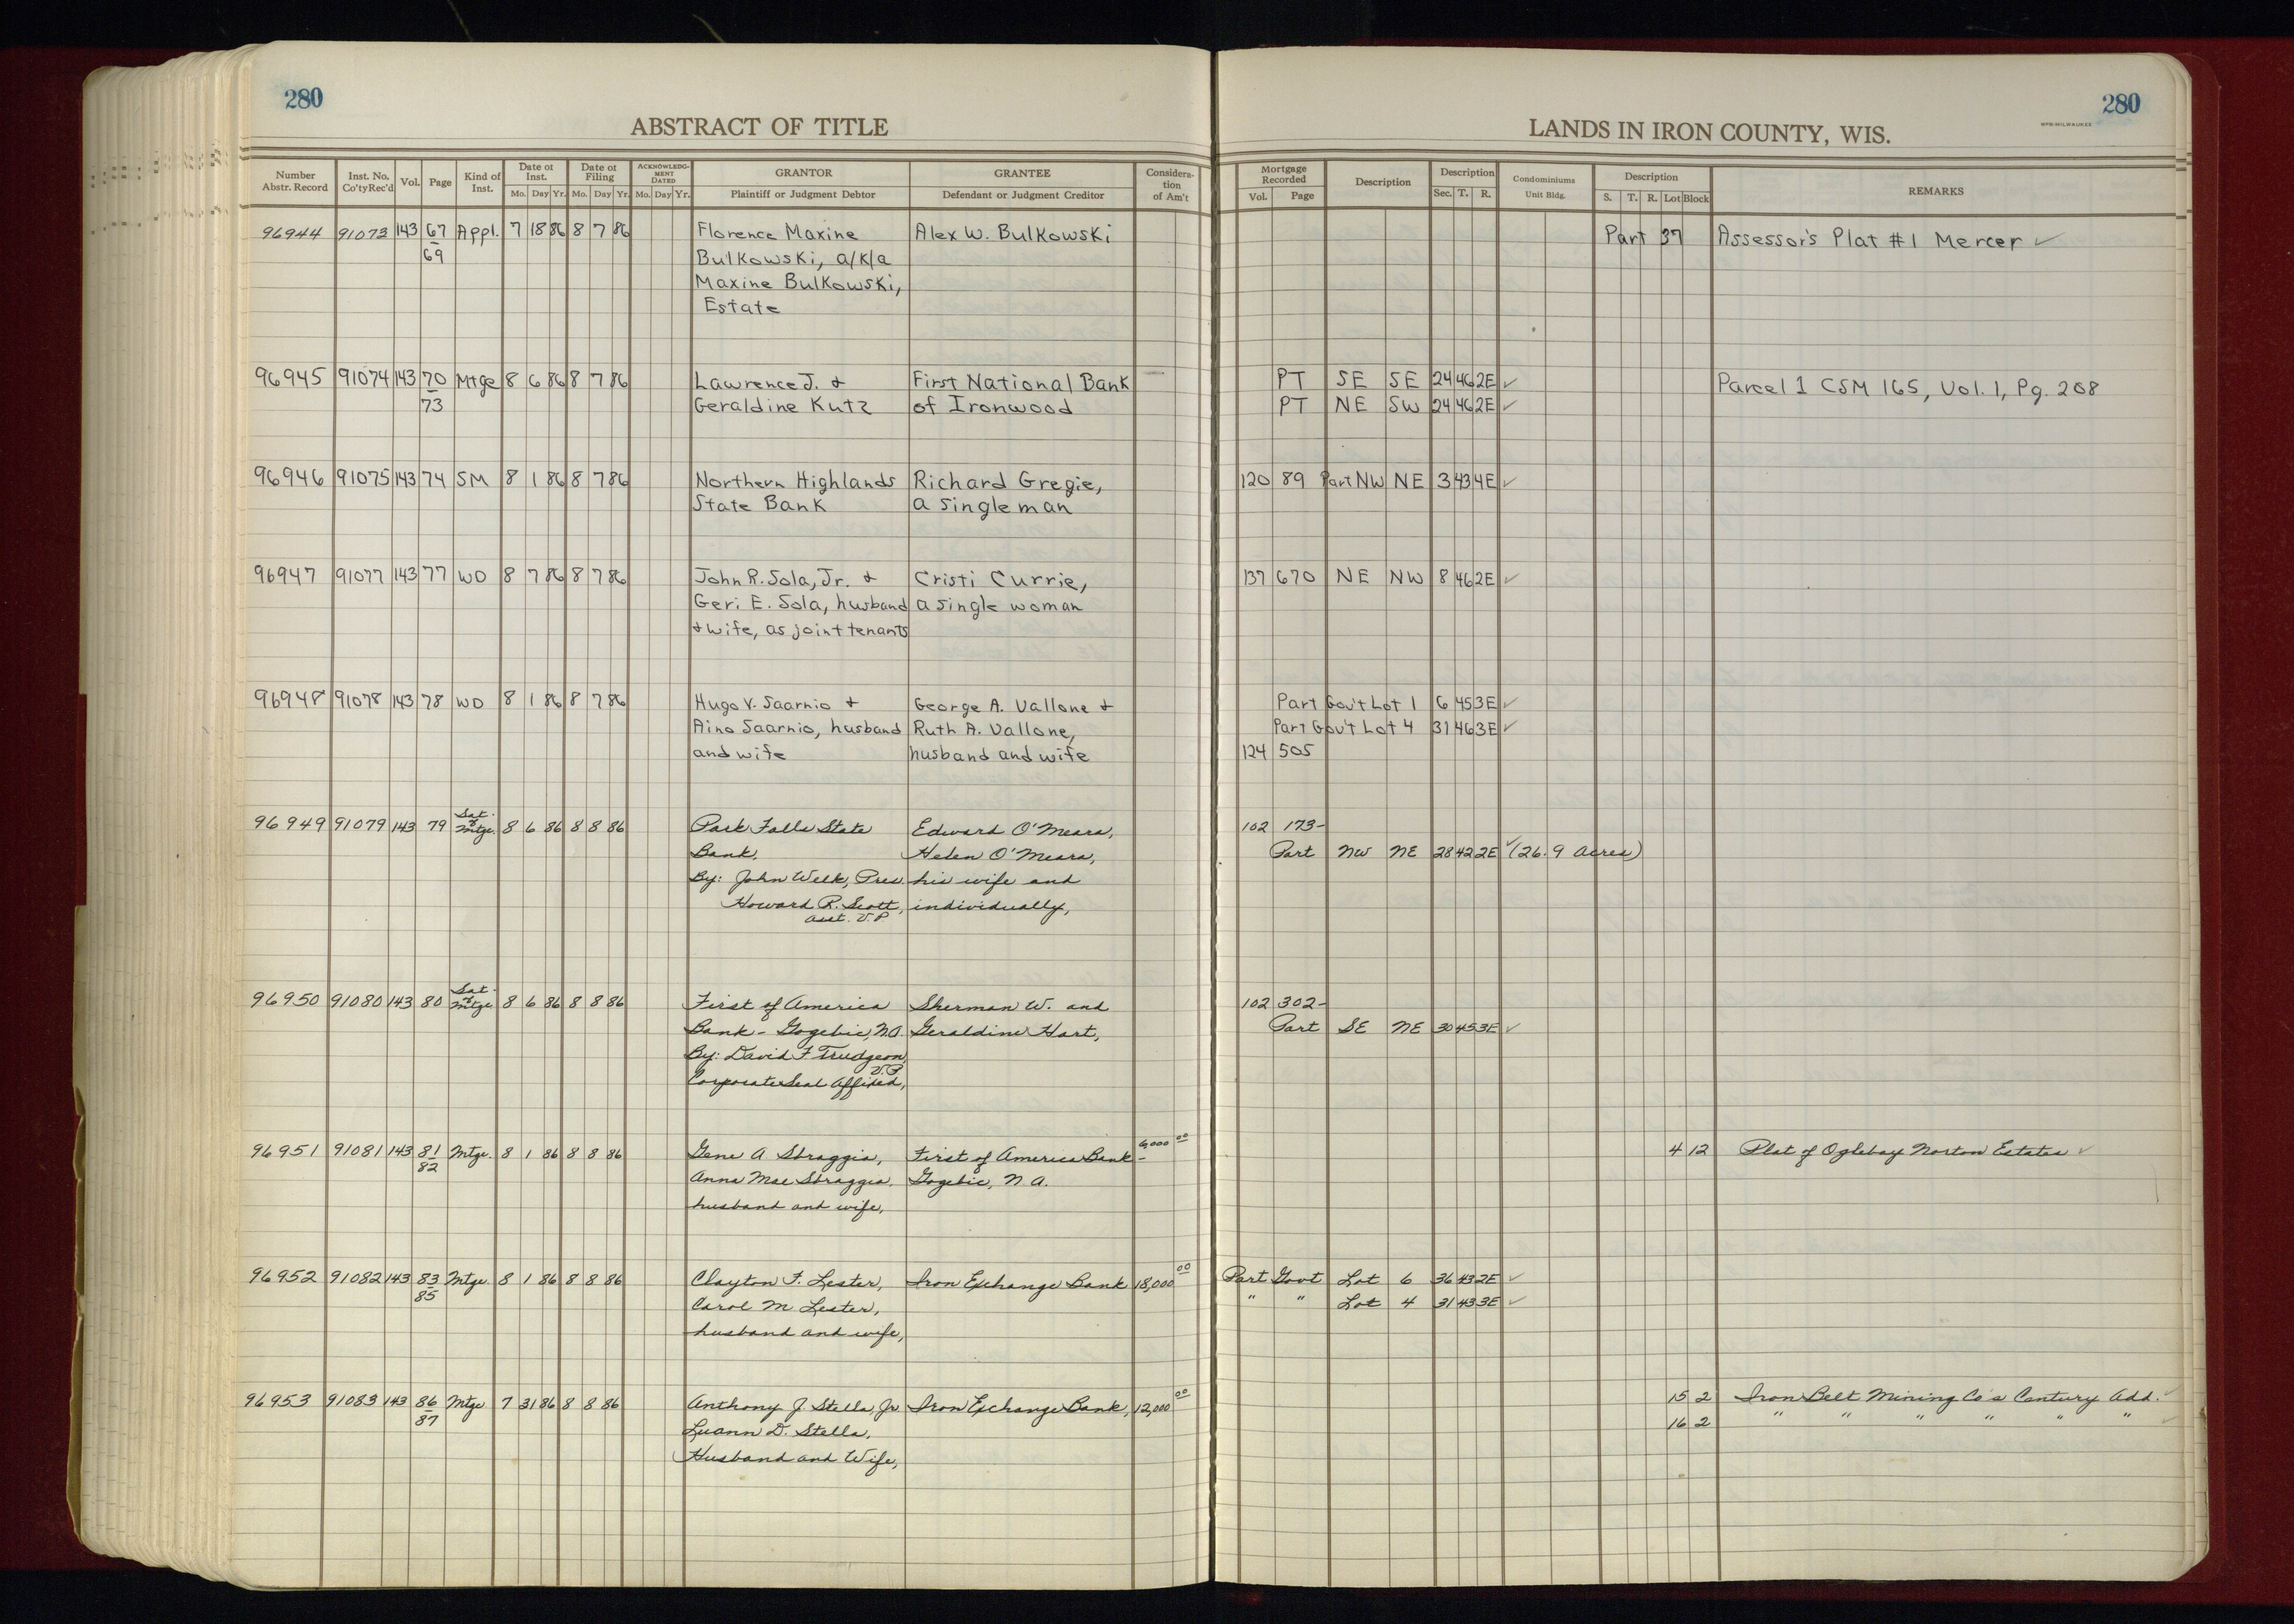 280
280
ABSTRACT OF TITLE
LANDS IN IRON COUNTY, WIS.
MPB-MILWAUKEE
Number Abstr. Record | Inst. No. Co'ty Rec'd | Vol. | Page | Kind of Inst. | Date of Inst. Mo. Day Yr. | Date of Filing Mo. Day Yr. | ACKNOWLEDGMENT DATED Mo. Day Yr. | GRANTOR Plaintiff or Judgment Debtor | GRANTEE Defendant or Judgment Creditor | Consideration of Am't | Mortgage Recorded Vol. Page | Description | Description Sec. T. R. | Condominiums Unit Bldg. | Description S. T. R. Lot Block | REMARKS
96944 91073 143 67 Appl. 7 18 86 8 7 86 Florence Maxine Alex W. Bulkowski Part 37 Assessor's Plat #1 Mercer ✓
69 Bulkowski, a/k/a
Maxine Bulkowski,
Estate
96945 91074 143 70 Mtge 8 6 86 8 7 86 Lawrence J. & First National Bank — PT SE SE 24 46 2E ✓ Parcel 1 CSM 165, Vol. 1, Pg. 208
73 Geraldine Kutz of Ironwood PT NE SW 24 46 2E ✓
96946 91075 143 74 SM 8 1 86 8 7 86 Northern Highlands Richard Gregie, 120 89 Part NW NE 3 43 4E ✓
State Bank a single man
96947 91077 143 77 WD 8 7 86 8 7 86 John R. Sola, Jr. & Cristi Currie, 137 670 NE NW 8 46 2E ✓
Geri E. Sola, husband a single woman
& wife, as joint tenants
96948 91078 143 78 WD 8 1 86 8 7 86 Hugo V. Saarnio & George A. Vallone & Part Gov't Lot 1 6 45 3E ✓
Aino Saarnio, husband Ruth A. Vallone, Part Gov't Lot 4 31 46 3E ✓
and wife husband and wife 124 505
96949 91079 143 79 Sat. of Mtge. 8 6 86 8 8 86 Park Falls State Edward O'Meara, 102 173-
Bank. Helen O'Meara, Part NW NE 28 42 2E ✓ (26.9 acres)
By: John Welk, Pres his wife and
Howard R. Scott, individually,
asst. V.P.
96950 91080 143 80 Sat. of Mtge 8 6 86 8 8 86 First of America Sherman W. and 102 302-
Bank - Gogebic, N.A. Geraldine Hart, Part SE NE 30 45 3E ✓
By: David F Trudgeon,
V.P
Corporate Seal affixed,
96951 91081 143 81 Mtge. 8 1 86 8 8 86 Gene A Sbraggia, First of America Bank- 6,000 00 4 12 Plat of Oglebay Norton Estates ✓
82 Anna Mae Sbraggia, Gogebic, N.A.
husband and wife,
96952 91082 143 83 Mtge 8 1 86 8 8 86 Clayton F. Lester, Iron Exchange Bank 18,000 00 Part Govt Lot 6 36 43 2E ✓
85 Carol M. Lester, " " Lot 4 31 43 3E ✓
husband and wife,
96953 91083 143 86 Mtge 7 31 86 8 8 86 Anthony J. Stella, Jr. Iron Exchange Bank, 12,000 00 15 2 Iron Belt Mining Co's Century Add. ✓
87 Luann D. Stella, 16 2 " " " " " " ✓
Husband and Wife,